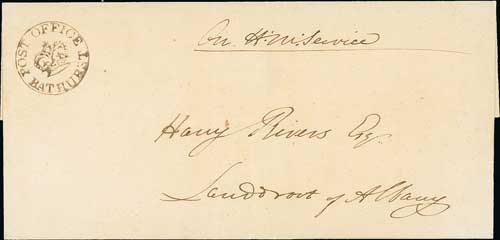 POST OFFICE BATHURST
On. H. M. Service
Harry Rivers Esq.
Landdrost of Albany